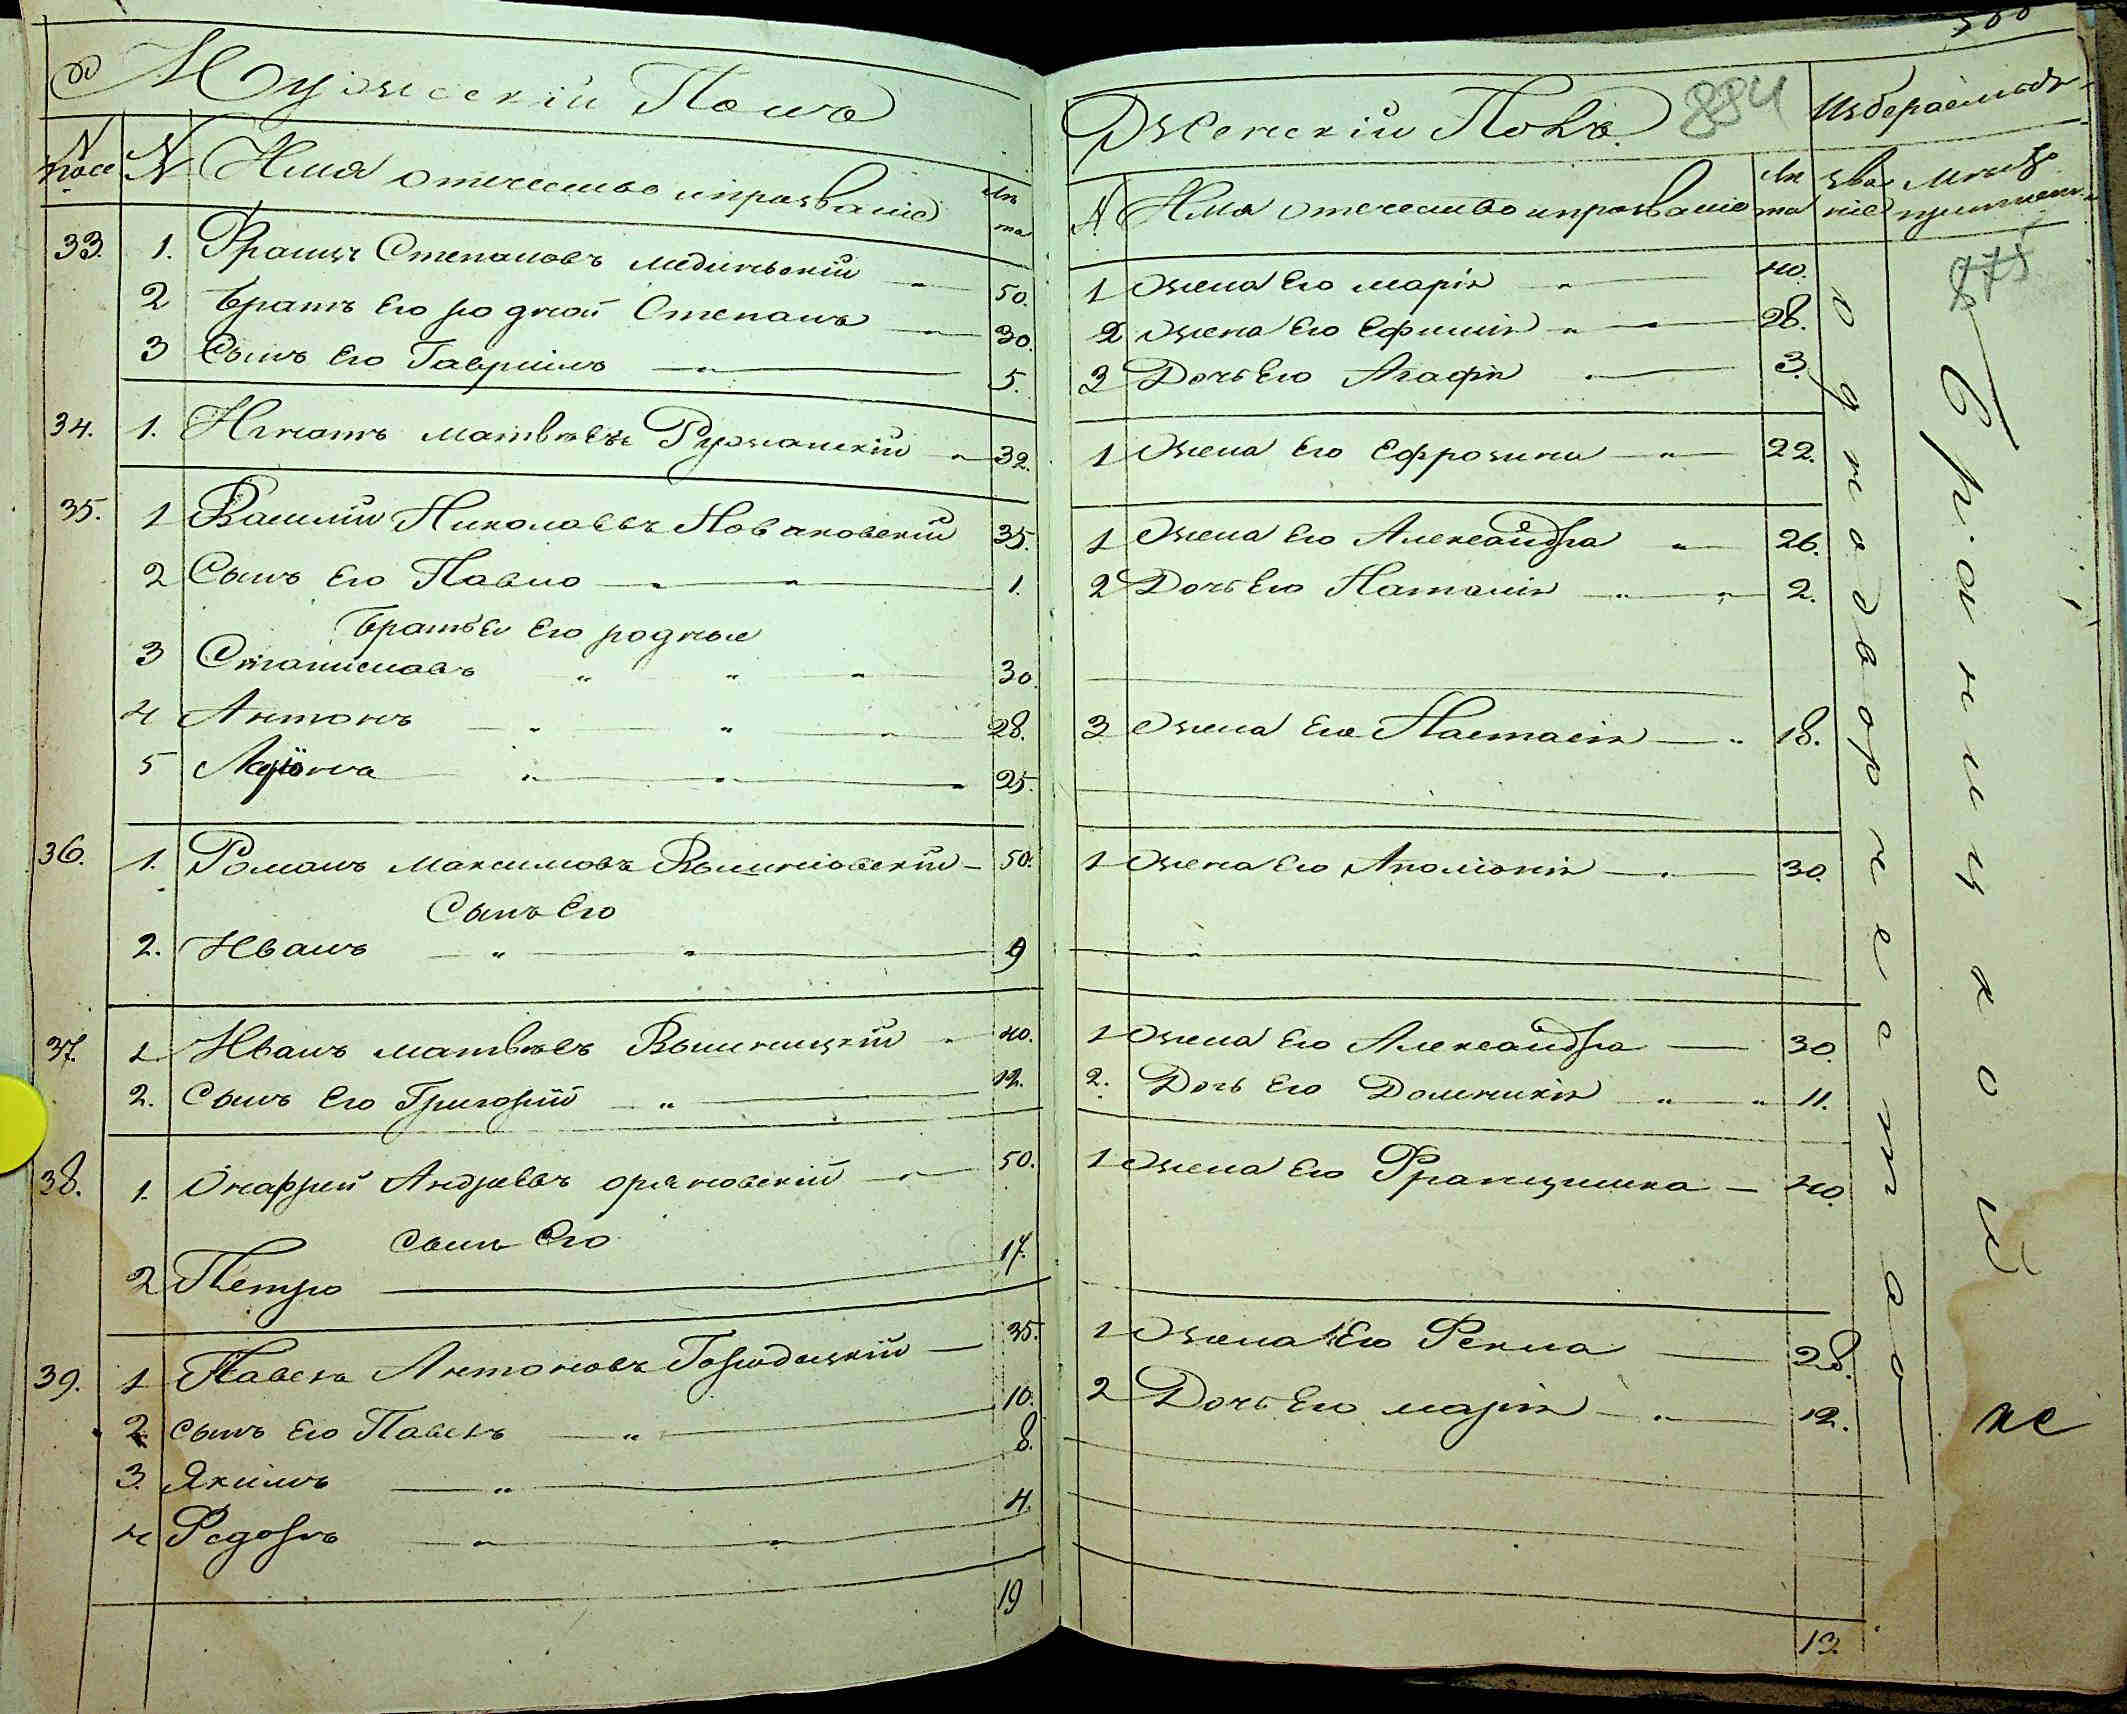 Мужескій Полъ
N посе N Имя отечество ипрозваніе лѣта
33. 1. Францъ Степановъ мединьскій 50.
2 братъ Его родной Степанъ 30.
3 Сынъ Его Гавриилъ 5.
34. 1. Игнатъ матвѣевъ Ружанскій 32.
35. 1 Василій Николаевъ Новаковскій 35.
2 Сынъ Его Павло 1.
братья Его родные
3 Станиславъ 30.
4 Антонъ 28.
5 25.
36. 1. Романъ Максимовъ 50.
Сынъ Его
2. Иванъ 9
37. 1 Иванъ матвѣевъ Вышницкій 40.
2. Сынъ Его Григорій 12.
38. 1. Онафрей Андреевъ оряновскій 50.
сынъ Его
2 Петро 17.
39. 1 Павелъ Антоновъ 35.
2. сынъ Его Павелъ 10.
3. Якимъ 8.
4 Федоръ 4.
19
884
Женскій Полъ
Избераемыя
N Имя отечество ипрозваніе лѣта зва ніе
875
1 жена Его марія 40.
2 жена Его Ефимія 28.
3 Дочь Его Агафія 3.
1 жена Его Ефрозина 22.
1 жена Его Александра 26.
2 Дочь Его Наталія 2.
3 жена Его Настасія 18.
1 жена Его Аполіонія 30.
1 жена Его Александра 30.
2. Дочь Его Доминикія 11.
1 жена Его Францишка 40.
1 жена Его Фекла 28.
2 Дочь Его марія 12.
13.
однодворческое
Браницкой